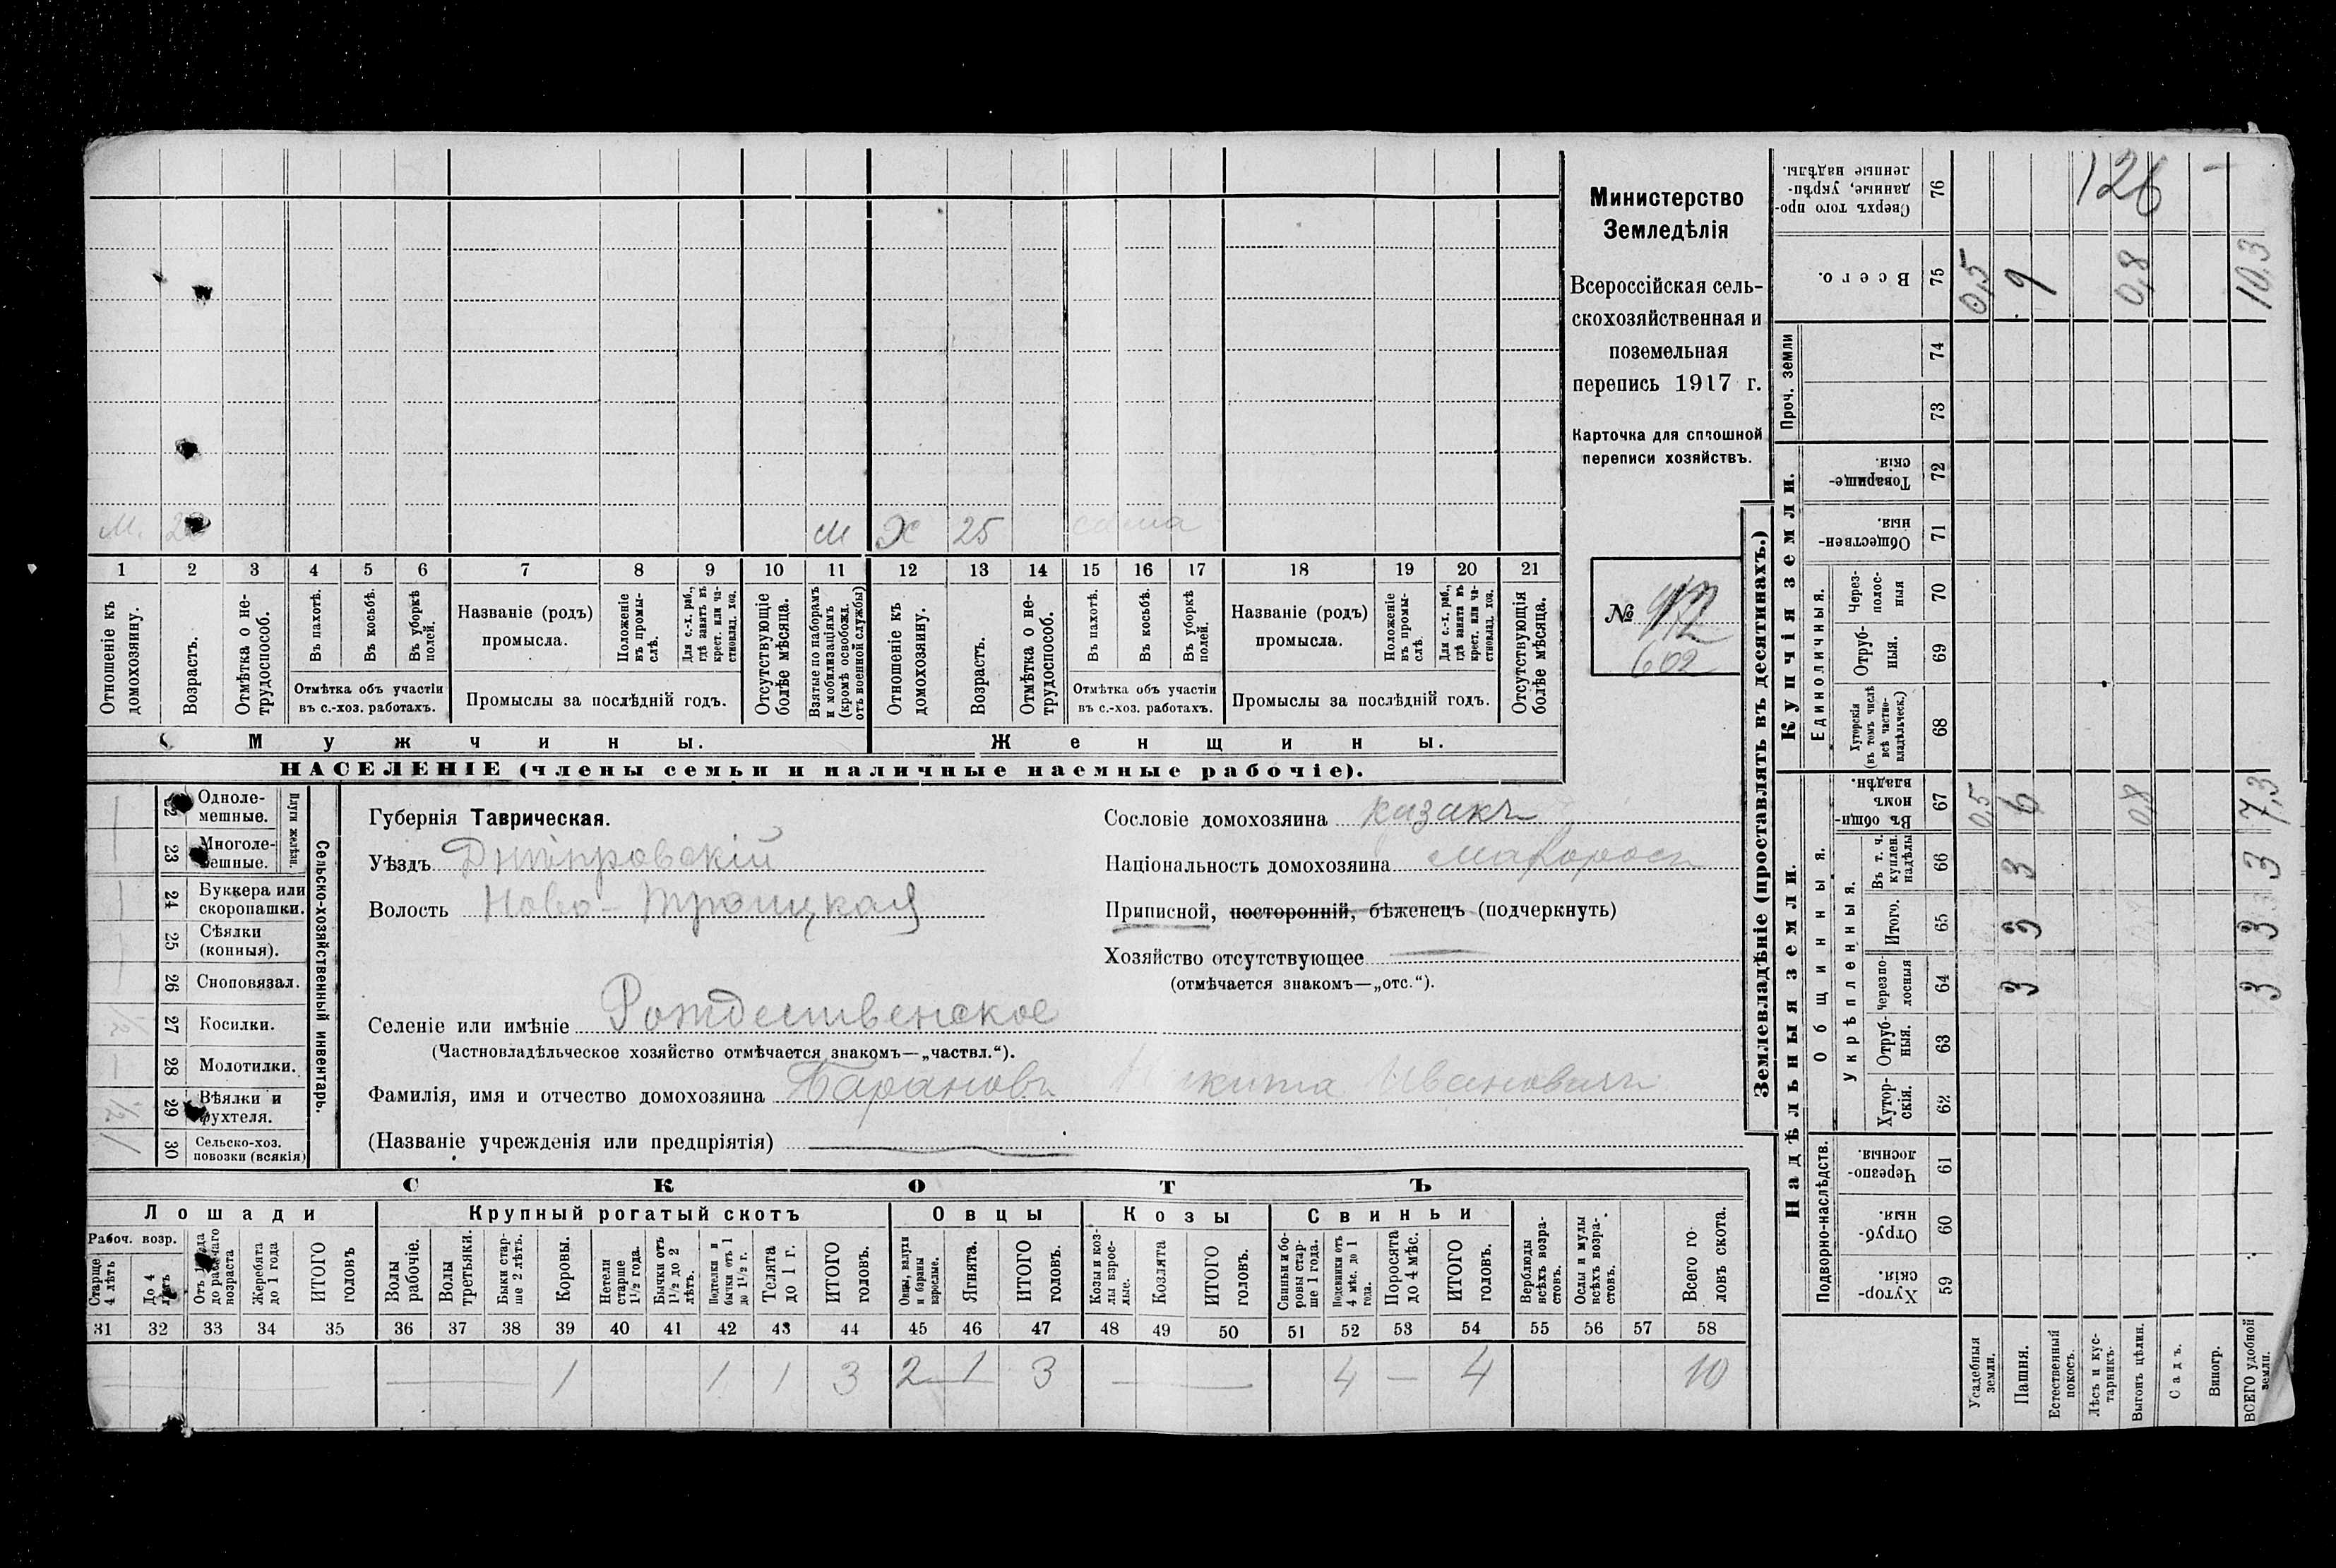 Министерство
Земледѣлія
Всероссійская сель-
скохозяйственная и
поземельная
перепись 1917 г.
Карточка для сплошной
переписи хозяйствъ.
№ 602
М. М Ж 25 сама
1 2 3 4 5 6 7 8 9 10 11 12 13 14 15 16 17 18 19 20 21
Отношеніе къ домохозяину.
Возрастъ.
Отмѣтка о не-трудоспособ.
Въ пахотѣ.
Въ косьбѣ.
Въ уборкѣ полей.
Отмѣтка объ участіи
въ с.-хоз. работахъ.
Названіе (родъ)
промысла.
Положеніе въ промы-слѣ.
Для с.-х. раб., гдѣ занятъ въ крест. или ча-стновлад. хоз.
Промыслы за послѣдній годъ.
Отсутствующіе болѣе мѣсяца.
Взятые по наборамъ и мобилизаціямъ (кромѣ освобожд. отъ военной службы)
Отношеніе къ домохозяину.
Возрастъ.
Отмѣтка о не-трудоспособ.
Въ пахотѣ.
Въ косьбѣ.
Въ уборкѣ полей.
Отмѣтка объ участіи
въ с.-хоз. работахъ.
Названіе (родъ)
промысла.
Положеніе въ промы-слѣ.
Для с.-х. раб., гдѣ занята въ крест. или ча-стновлад. хоз.
Промыслы за послѣдній годъ.
Отсутствующія болѣе мѣсяца.
Мужчины. Женщины.
НАСЕЛЕНІЕ (члены семьи и наличные наемные рабочіе).
Сельско-хозяйственный инвентарь.
Плуги желѣзн.
22 Однолемешные.
23 Многолемешные.
24 Буккера или скоропашки.
25 Сѣялки (конныя).
26 Сноповязал.
27 Косилки.
28 Молотилки.
29 Вѣялки и фухтеля.
30 Сельско-хоз. повозки (всякія)
Губернія Таврическая.
Уѣздъ Днѣпровскій
Волость Ново-Троицкая
Сословіе домохозяина казакъ
Національность домохозяина малорос
Приписной, посторонній, бѣженецъ (подчеркнуть)
Хозяйство отсутствующее —
(отмѣчается знакомъ—„отс.“).
Селеніе или имѣніе Рождественское
(Частновладѣльческое хозяйство отмѣчается знакомъ—„частвл.“).
Фамилія, имя и отчество домохозяина Барановъ Никита Ивановичъ
(Названіе учрежденія или предпріятія)
СКОТЪ
Лошади Крупный рогатый скотъ Овцы Козы Свиньи
Рабоч. возр.
Старше 4 лѣтъ
До 4 лѣтъ
Отъ 1 года до рабочаго возраста
Жеребята до 1 года
ИТОГО головъ
Волы рабочіе.
Волы третьяки.
Быки стар-ше 2 лѣтъ.
Коровы.
Нетели старше 1½ года.
Бычки отъ 1½ до 2 лѣтъ.
Подтелки и бычки отъ 1 до 1½ г.
Телята до 1 г.
ИТОГО головъ.
Овцы, валухи и бараны взрослые.
Ягнята.
ИТОГО головъ.
Козы и коз-лы взрос-лые.
Козлята
ИТОГО головъ.
Свиньи и бо-ровы стар-ше 1 года.
Подсвинки отъ 4 мѣс. до 1 года.
Поросята до 4 мѣс.
ИТОГО головъ.
Верблюды всѣхъ возра-стовъ.
Ослы и мулы всѣхъ возра-стовъ.
Всего го-ловъ скота.
31 32 33 34 35 36 37 38 39 40 41 42 43 44 45 46 47 48 49 50 51 52 53 54 55 56 57 58
1 1 1 3 2 1 3 — — 4 — 4 10
Землевладѣніе (проставлять въ десятинахъ.)
Надѣльныя земли. Купчія земли. Проч. земли
Подворно-наслѣдств. Общинныя. Единоличныя.
Укрѣпленныя.
59 Хутор-скія.
60 Отруб-ныя.
61 Черезпо-лосныя
62 Хутор-скія.
63 Отруб-ныя.
64 Черезпо-лосныя
65 Итого.
66 Въ т. ч. куплен. надѣлы
67 Въ общин-номъ владѣн.
68 Хуторскія (въ томъ числѣ всѣ частно-владѣльческ.)
69 Отруб-ныя.
70 Через-полос-ныя
71 Обществен-ныя.
72 Товарище-скія.
73
74
75 Всего.
76 Сверхъ того про-данные, укрѣп-ленные надѣлы.
Усадебныя земли. 0,5 0,5
Пашня. 3 3 3 6 9
Естественный покосъ.
Лѣсъ и кус-тарникъ.
Выгонъ цѣлин. 0,8 0,8
Садъ.
Виногр.
ВСЕГО удобной земли. 3 3 3 7,3 10,3
126 —